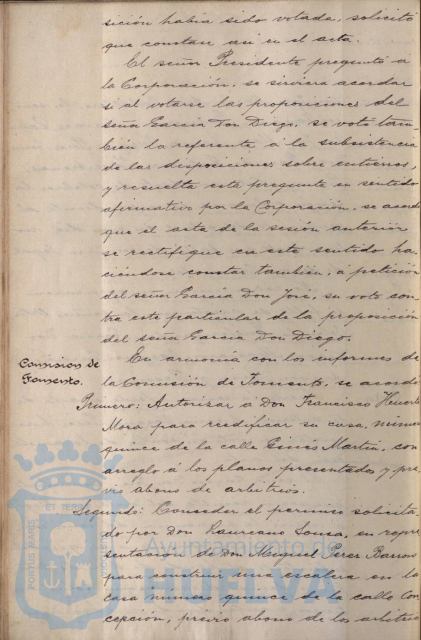 sición había sido votada, solicitó
que constase asi en el acta.
El señor Presidente preguntó a
la Corporación, se sirviera acordar
si al votarse las proposiciones del
señor García Don Diego, se votó tam-
bién la referente á la subsistencia
de las disposiciones sobre entierros,
y resuelta esta pregunta en sentido
afirmativo por la Corporación, se acordó
que el acta de la sesión anterior
se rectifique en este sentido ha-
ciéndose constar también, a petición
del señor García Don José, su voto con-
tra este particular de la proposición
del señor García Don Diego.
Comision de
Fomento.
En armonía con los informes de
la Comisión de Fomento, se acordó
Primero: Autorizar a Don Francisco
Mora para reedificar su casa, número
quince de la calle Ginés Martín, con
arreglo á los planos presentados y pre-
vio abono de arbitrios.
Segundo: Conceder el permiso solicita-
do por Don Laureano Sousa, en repre-
sentacion de Don Miguel Perez Barroso
para construir una escalera en la
casa número quince de la calle Con
cepción, previo abono de los arbitrios
PORTUS MARIS
ET TERRAE
Ayuntamiento de
HUELVA